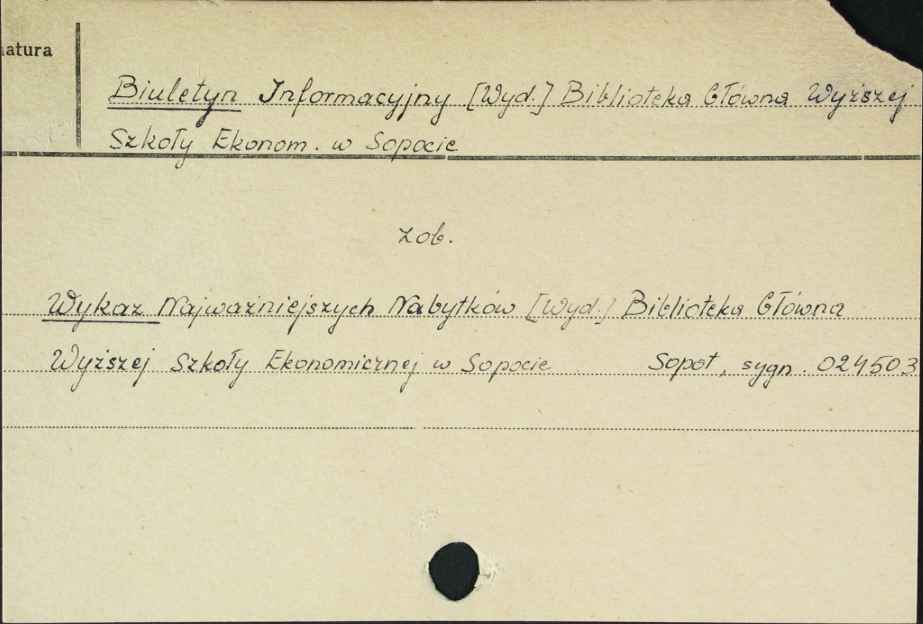 natura
Biuletyn Informacyjny [Wyd.] Biblioteka Główna Wyższej
Szkoły Ekonom. w Sopocie
zob.
Wykaz Najważniejszych Nabytków [Wyd.] Biblioteka Główna
Wyższej Szkoły Ekonomicznej w Sopocie Sopot, sygn. 024503